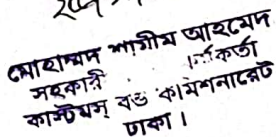 মোহাম্মদ শামীম আহমেদ
সহকারী কর্মকর্তা
কাস্টমস্ বন্ড কমিশনারেট
ঢাকা।